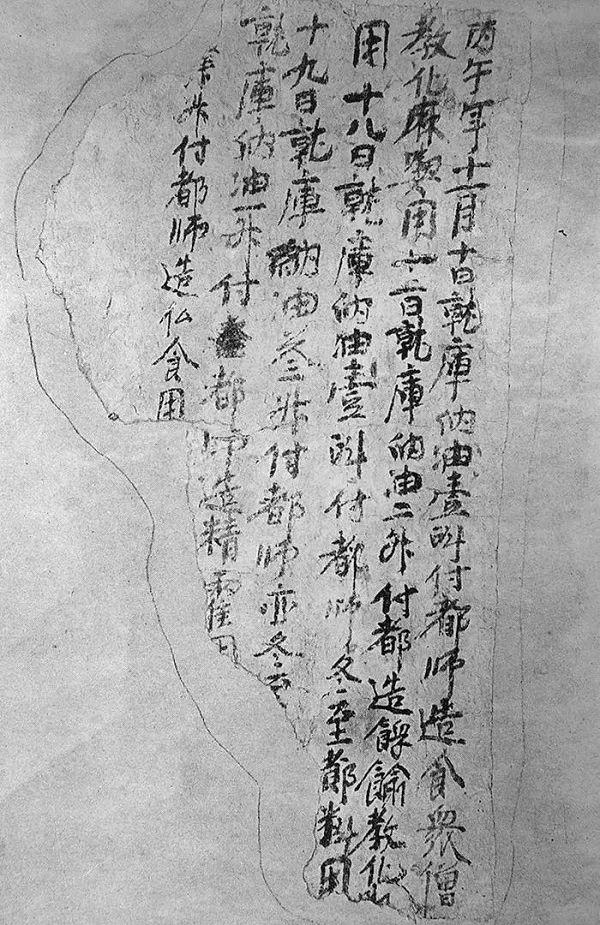 丙午年十一月十日乾庫納油壹㪷付都师造食衆僧
教化麻要用十二日乾庫納油二升付都造䴺𩜇教化
用十八日乾庫納油壹㪷付都师冬至節料用
十九日乾庫納油叁升付都师亦冬至
乾庫納油一升付都师造精
升付都师造仏食用